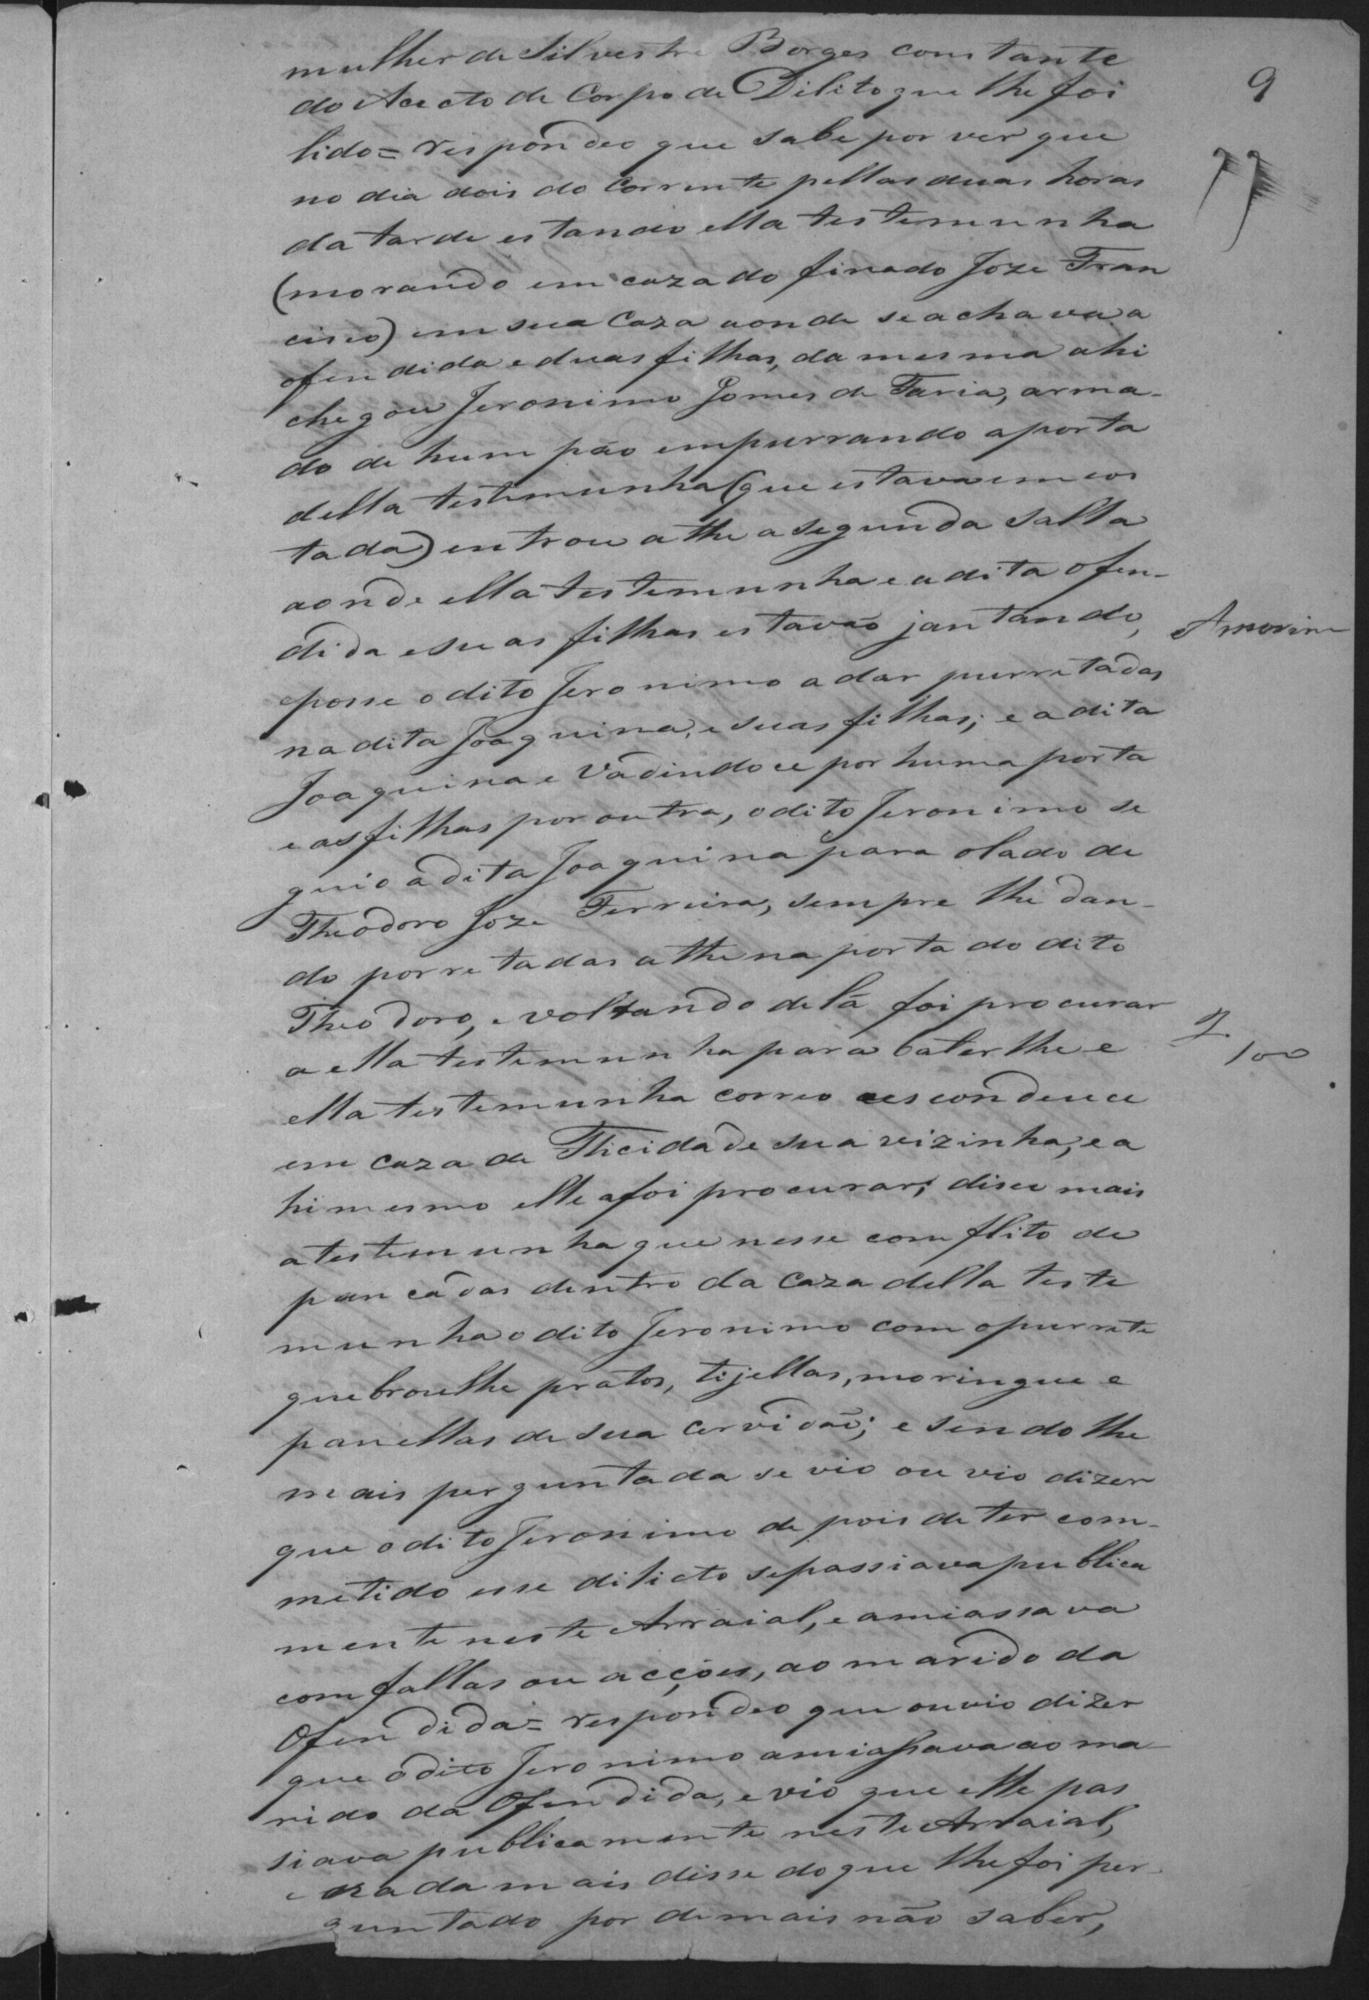 9
mulher de Silvestre Borges constante
do Aucto de Corpo de Dilito que lhe foi
lido = respondeo que sabe por ver que
no dia dois do Corrente pellas duas horas
da tarde estando ella testemunha
(morando em caza do finado Joze Fran
cisco) em sua Caza aonde se achava a
ofendida e duas filhas, da mesma ahi
chegou Jeronimo Gomes de Faria, arma-
do de hum páo empurrando a porta
della testemunha (que estava emcos
tada) entrou athe a segunda salla
aonde ella testemunha e a dita ofen-
dida e suas filhas estavão jantando,
Amorim
eposse o dito Jeronimo a dar purretadas
na dita Joaquina, e suas filhas; e a dita
Joaquina e vadindoce por huma porta
e as filhas por outra, o dito Jeronimo se
guio a dita Joaquina para o lado de
Theodoro Joze Ferreira, sempre lhe dan-
do porretadas athe na porta do dito
Theodoro, e voltando de lá foi procurar
100
a ella testemunha para baterlhe e
ella testemunha correo aescondeuce
em caza de Flicidade sua vizinha, e a
hi mesmo elle a foi procurar; dise mais
a testemunha que nesse comflito de
pancadas dentro da Caza della teste
munha o dito Jeronimo com o purrete
quebroulhe pratos, tijellas, moringue e
panellas de sua cervidão; e sendo lhe
mais perguntada se vio ou vio dizer
que o dito Jeronimo depois de ter com-
metido esse dilicto sepassiava publica
mente neste Arraial, e amiassava
com fallas ou acções, ao marido da
Ofendida = respondeo que ouvio dizer
que o dito Jeronimo amiassava ao ma
rido da Ofendida, e vio que elle pas
siava publicamente neste Arraial,
e nada mais disse do que lhe foi per-
guntado por demais não saber,